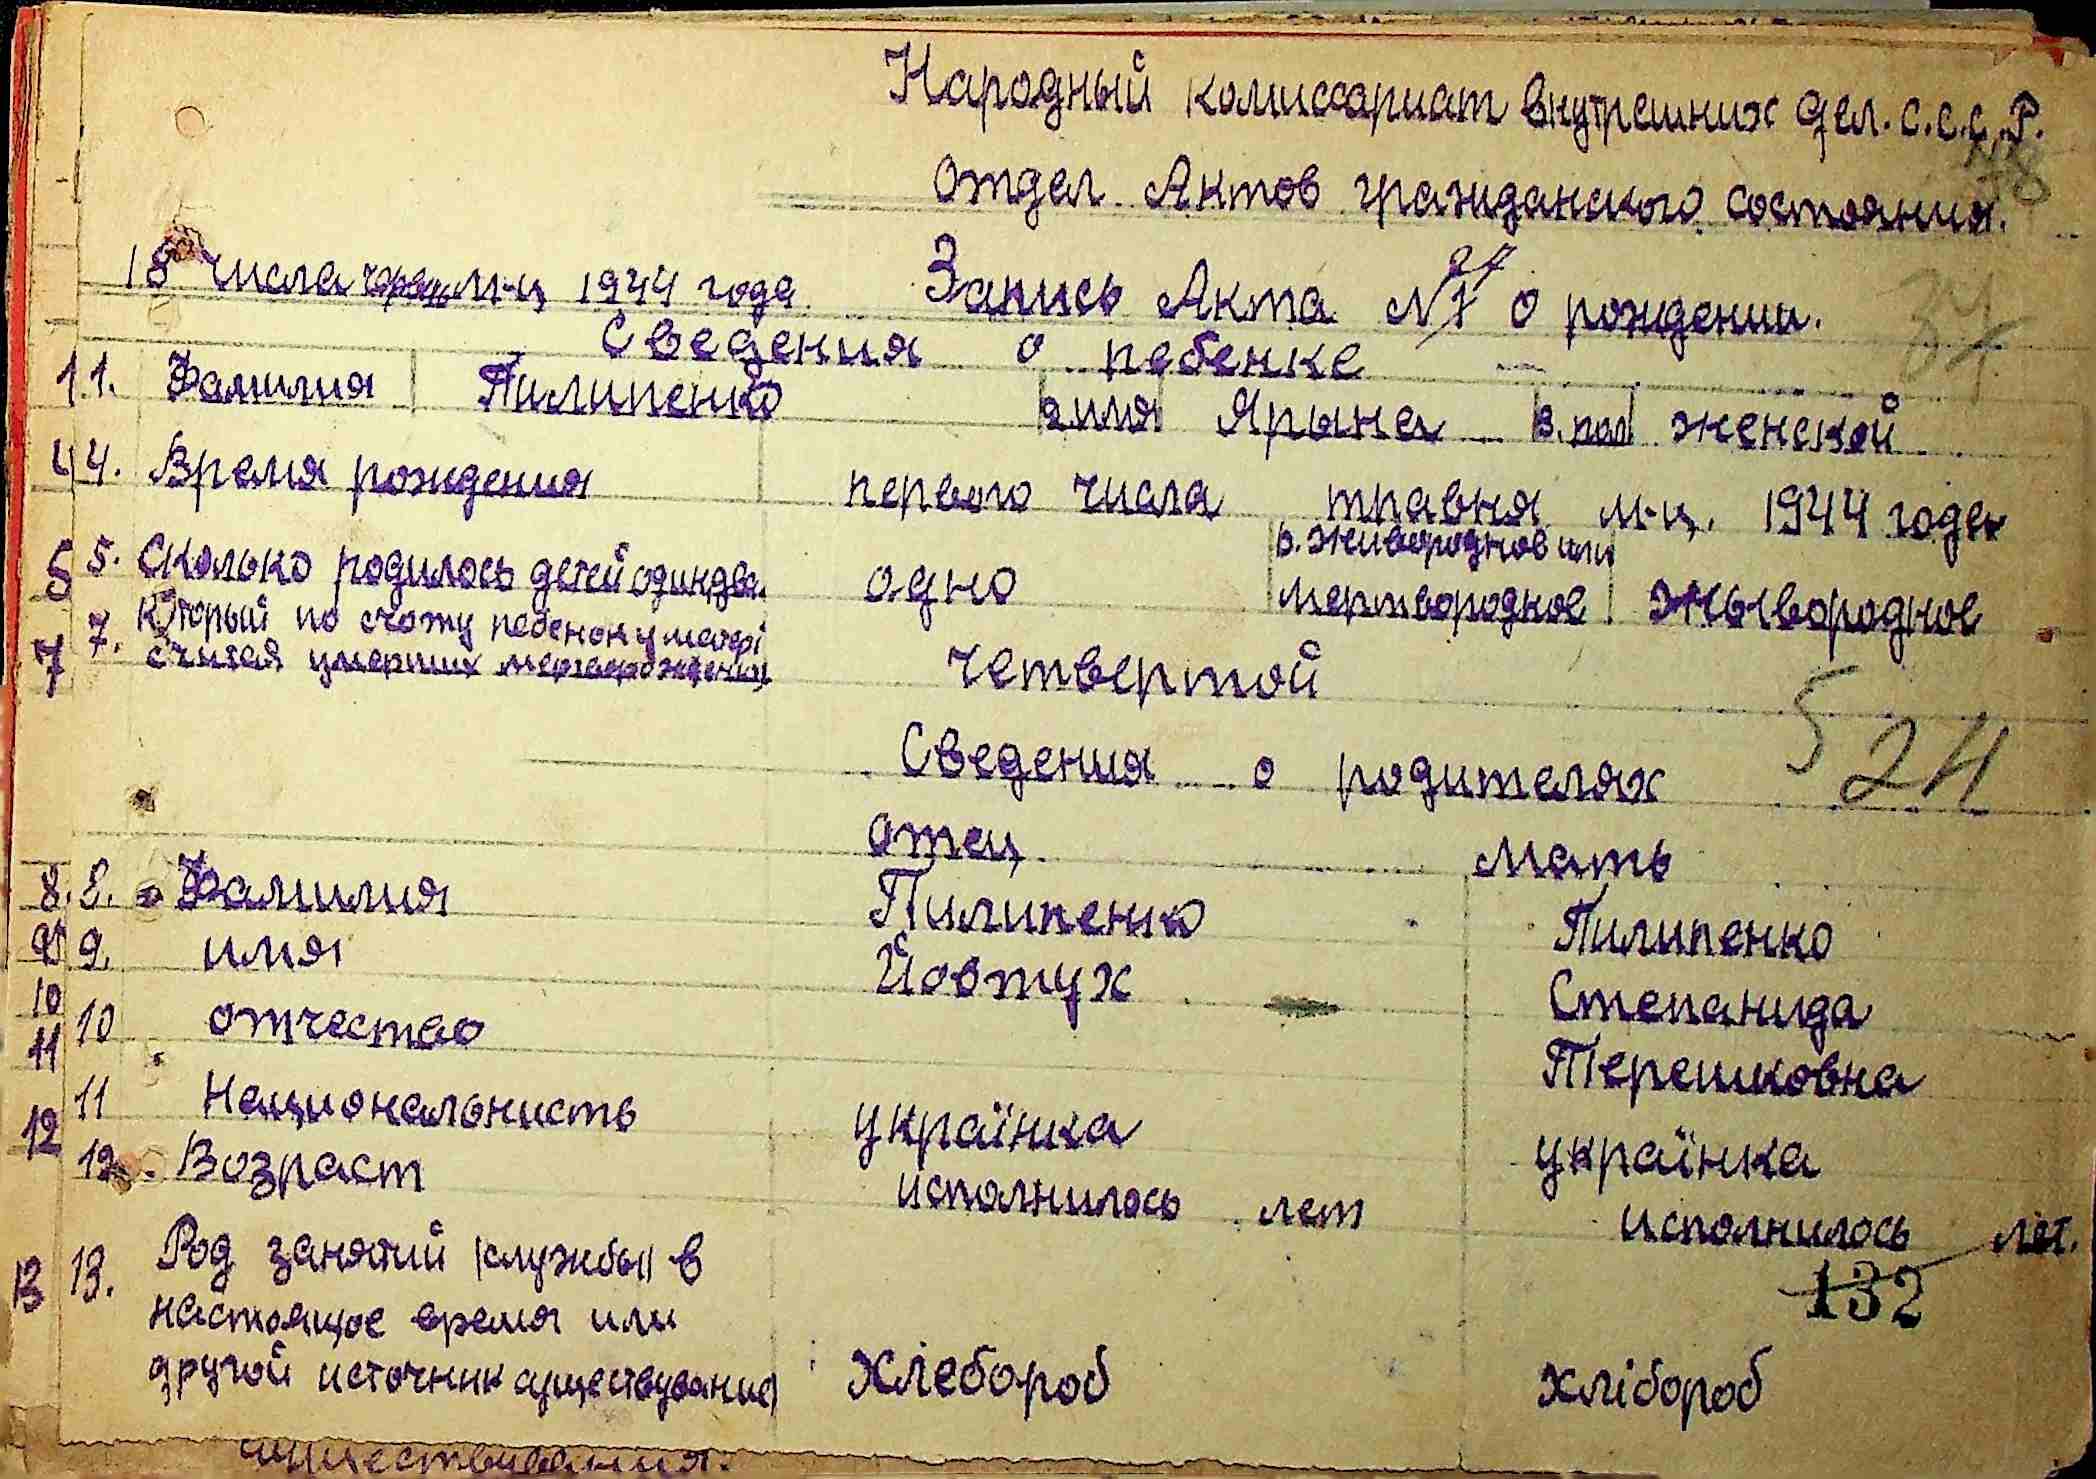 Народный комиссариат внутренних дел. С.С.С.Р.
Отдел Актов гражданского состояния.
18 числа м-ц 1944 года Запись Акта № 27 о рождении.
Сведения о ребенке
1 1. Фамилия Пилипенко 2. имя Ярына 3. пол женской
4 4. Время рождения первого числа травня м-ц. 1944 года
5 5. Сколько родилось детей один, два. одно 6. живороднов или мертвородное жывородное
7 7. Который по счоту ребенок у матері считая умерших мертворождених четвертой
Сведения о родителях
5 24
отец мать
8. 8. Фамилия Пилипенко Пилипенко
9 9. имя Йовтух Степанида
10 10 отчество Терешковна
11 11 Национальнисть українка українка
12 12. Возраст исполнилось лет исполнилось лет.
132
13 13. Род занятий (службы) в
настоящое время или
другой источник существування хлебороб хлібороб
существування.